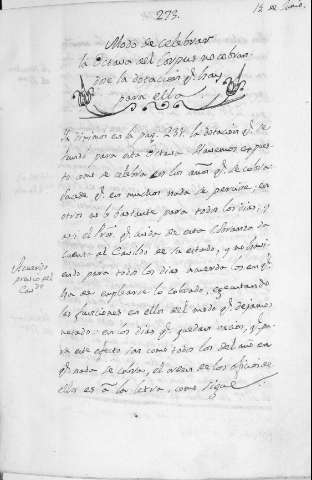 273.
13 de Junio.
Modo de celebrar
la Octava del Corpus no cobran-
dose la dotacion q.e hay
para ella
Ya digimos en la pag. 237 la dotacion q.e se
fundó para esta Octava. Haremos expues-
to como se celebra en los años q.e se cobra
q.e en muchos nada se percive, en
otros no lo bastante para todos los dias; y
asi el q.e cuida de esta cobranza da
cuenta al Cavildo de su estado, y no havi-
endo para todos los dias acuerda los en q.e
ha de emplearse lo cobrado, egecutando
las funciones en ellos del modo q.e dejamos
notado: en los dias q.e quedan vacios, q.e pa-
ra este efecto son como todos los del año en
q.e nada se cobra, el orden de los oficios en
ellos es a la letra, como sigue
Acuerdo
previo del
Cav.do